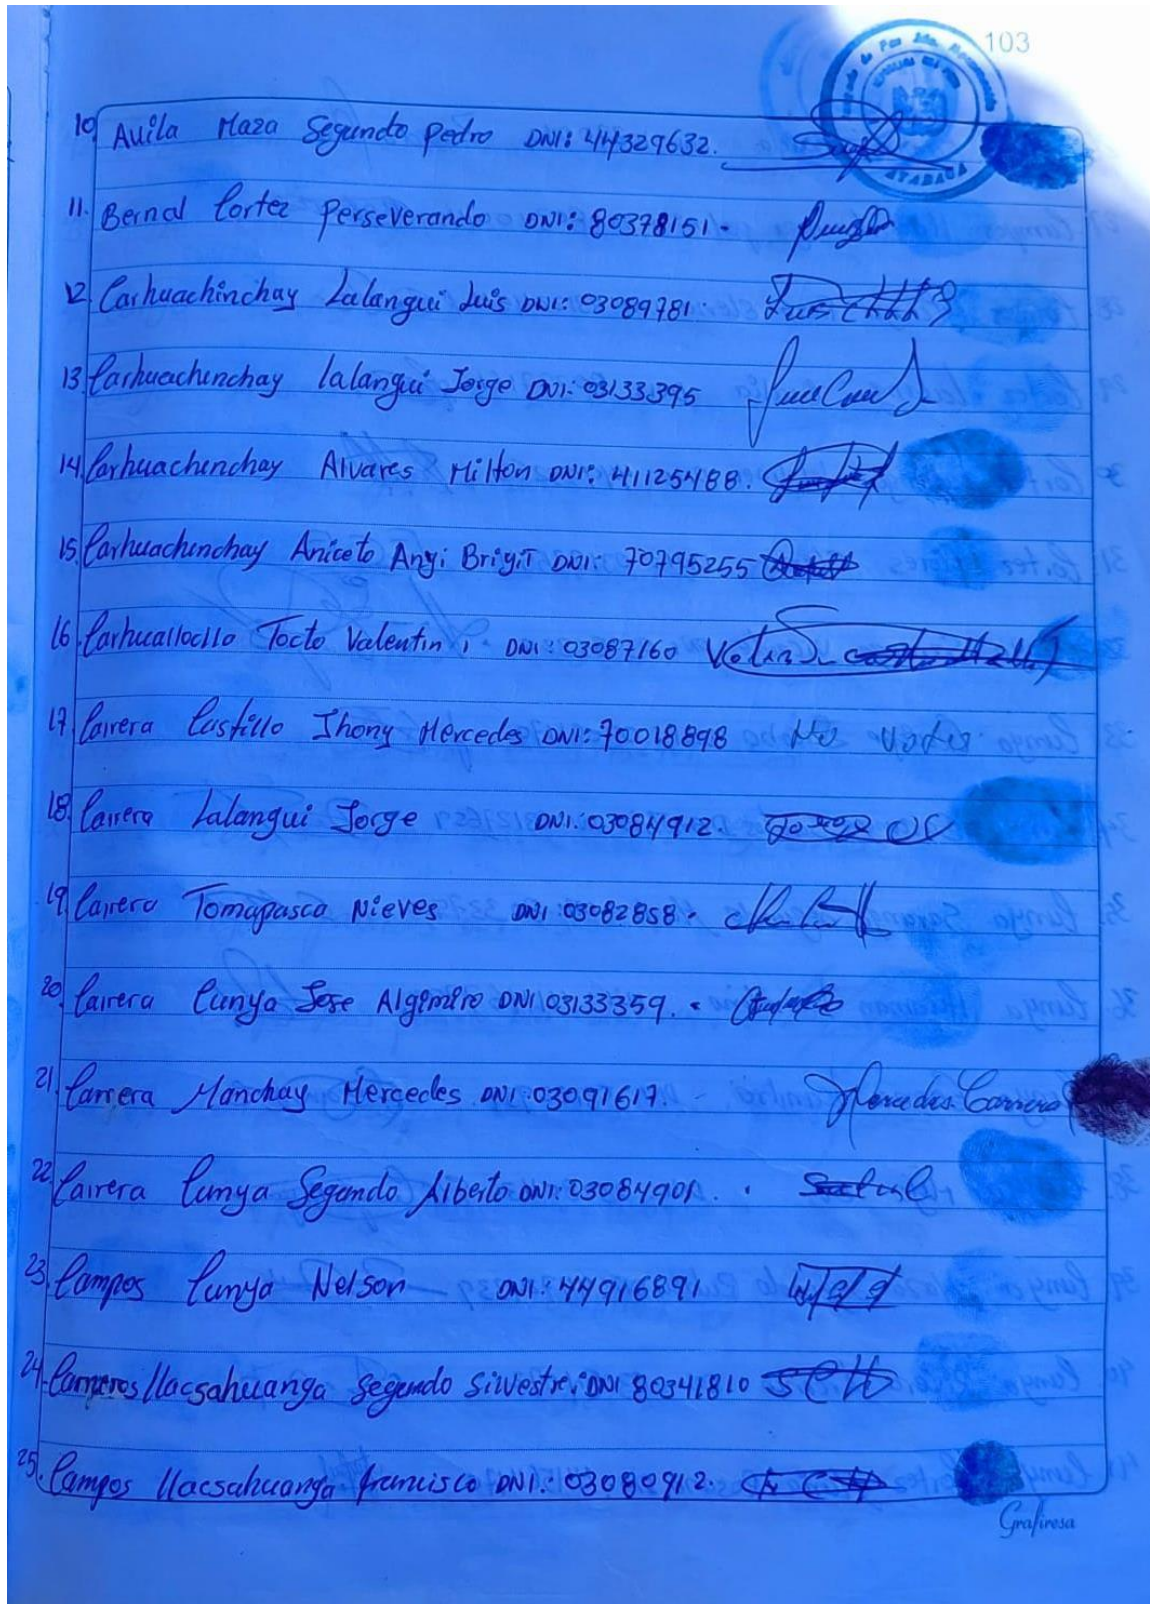 103
10 Avila Maza Segundo Pedro DNI: 44329632.
AYABACA
11. Bernal Cortez Perseverando DNI: 80378151.
12 Carhuachinchay Lalangui Luis DNI: 03089781.
13 Carhuachinchay Lalangui Jorge DNI: 03133395
14 Carhuachinchay Alvares Milton DNI: 41125488.
15. Carhuachinchay Aniceto Angi Brigit DNI: 70795255
16. Carhuallocllo Tocto Valentin, DNI: 03087160
17 Carrera Castillo Jhony Mercedes DNI: 70018898 No votes
18. Carrera Lalangui Jorge DNI: 03084912.
19 Carrera Tomapasca Nieves DNI: 03082858.
20. Carrera Cunya Jose Algemiro DNI 03133359.
21. Carrera Manchay Mercedes DNI 03091617. - Mercedes Carrera
22 Carrera Cunya Segundo Alberto DNI: 03084901.
23. Campos Cunya Nelson DNI: 44916891
24. Camperos Llacsahuanga Segundo Silvestre, DNI 80341810
25. Campos Llacsahuanga francisco DNI: 03080912.
Grafirosa